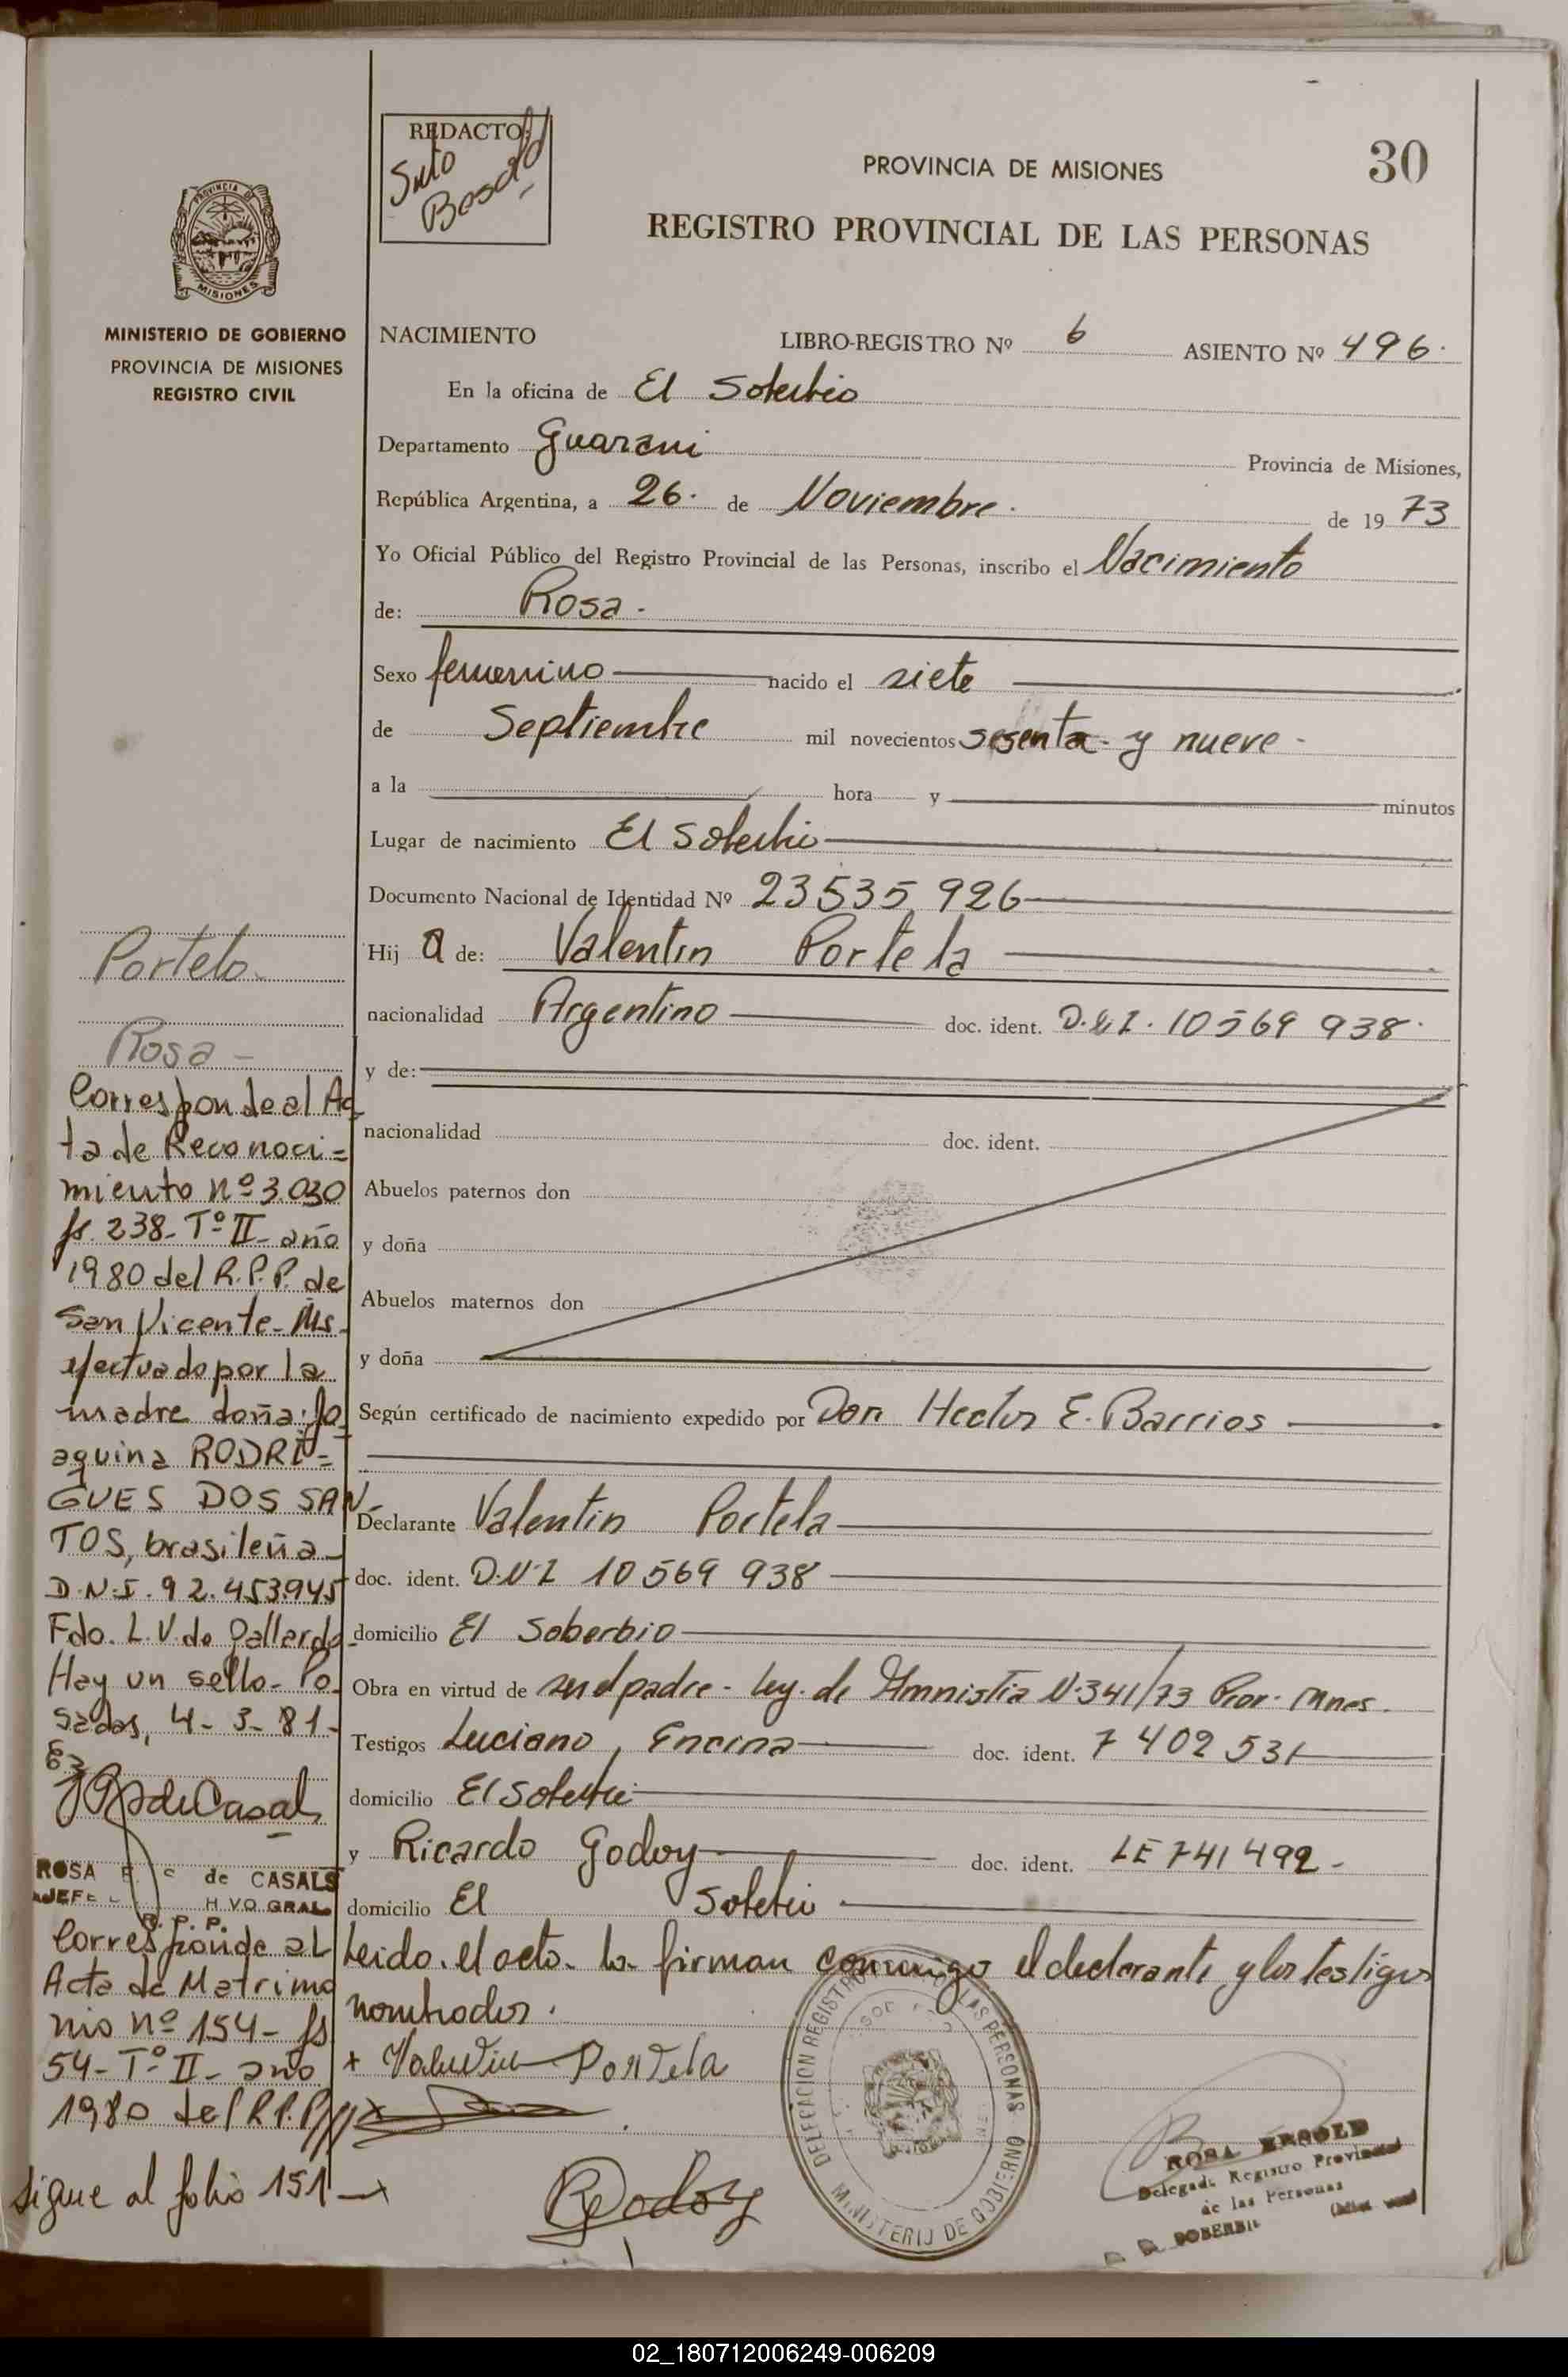 30
REDACTO:
PROVINCIA DE MISIONES
REGISTRO PROVINCIAL DE LAS PERSONAS
PROVINCIA
MISIONES
MINISTERIO DE GOBIERNO
PROVINCIA DE MISIONES
REGISTRO CIVIL
NACIMIENTO LIBRO-REGISTRO Nº 6 ASIENTO Nº 496.
En la oficina de El Soberbio
Departamento Guarani Provincia de Misiones,
República Argentina, a 26. de Noviembre. de 19 73
Yo Oficial Público del Registro Provincial de las Personas, inscribo el Nacimiento
de: Rosa.
Sexo femenino nacido el siete
de Septiembre mil novecientos sesenta y nueve
a la hora y minutos
Lugar de nacimiento El Soberbio
Documento Nacional de Identidad Nº 23535926
Hij a de: Valentin Portela
nacionalidad Argentino doc. ident. D.N.I. 10569 938
y de:
nacionalidad doc. ident.
Abuelos paternos don
y doña
Abuelos maternos don
y doña
Según certificado de nacimiento expedido por Don Hector E. Barrios
Declarante Valentin Portela
doc. ident. D.N.I 10569 938
domicilio El Soberbio
Obra en virtud de ser el padre - Ley. de Amnistia N.341/73 Prov. Mnes.
Testigos Luciano, Encina doc. ident. 7 402 531
domicilio El Soberbio
y Ricardo Godoy doc. ident. LE 741 492 -
domicilio El Soberbio
Leido. el acta. la firman conmigo el declarante y los testigos
nombrados.
+ Valentin Portela
ROSA
Delegada Registro Provincial
de las Personas
SOBERBIO
DELEGACION REGISTRO LAS PERSONAS
MINISTERIO DE GOBIERNO
Portela
Rosa -
Corresponde al Ac
ta de Reconoci=
miento nº 3.030
fs. 238- Tº II- año
1980 del R.P.P. de
San Vicente- Ms.
efectuado por la
madre doña: Jo
aquina RODRI=
GUES DOS SAN-
TOS, brasileña-
D.N.I. 92.453945
Fdo. L.V. de Gallardo-
Hay un sello- Po-
sadas, 4-3-81-
ROSA de CASALS
JEFE H VO GRAL
R. P. P.
Corresponde al
Acta de Matrimo
nio nº 154- fs
54- Tº II- año
1980 del R.P.P///
Sigue al folio 151
02_180712006249-006209